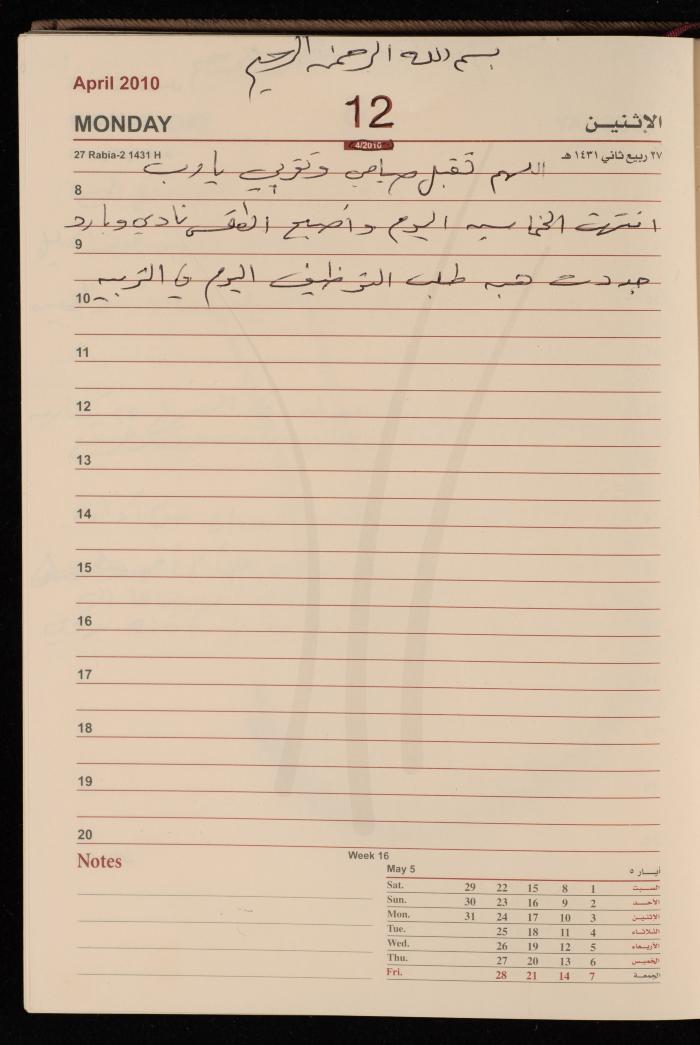 بسم الله الرحمن الرحيم
April 2010
MONDAY 12 الإثنين
4/2010
27 Rabia-2 1431 H ٢٧ ربيع ثاني ١٤٣١ هـ
اللهم تقبل صيامي وتوبتي يا رب
8
انتهت الخماسيه اليوم واصبح الطقس نادي وبارد
9
جددت هبه طلب التوظيف اليوم في التربيه
10
11
12
13
14
15
16
17
18
19
20
Notes
Week 16
May 5 أيـــار ٥
Sat. 29 22 15 8 1 السبت
Sun. 30 23 16 9 2 الأحد
Mon. 31 24 17 10 3 الاثنين
Tue. 25 18 11 4 الثلاثاء
Wed. 26 19 12 5 الأربعاء
Thu. 27 20 13 6 الخميس
Fri. 28 21 14 7 الجمعة